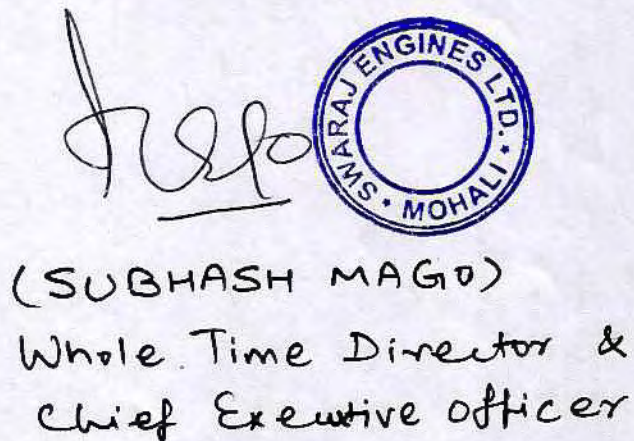 SWARAJ ENGINES LTD. * MOHALI *
(SUBHASH MAGO)
Whole Time Director &
Chief Executive Officer